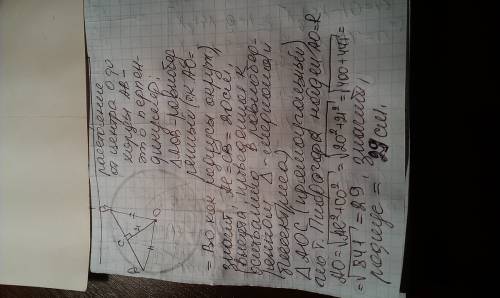 A
C
B
O
расстояние
от центра O до
хорды AB =
это перпен-
дикуляр.
ΔAOB - равнобед-
ренный (т.к AO=
= BO как радиусы окруж)
значит, AC = CB = 20см
высота, проведенная к
основанию в равнобед-
ренном Δ - медиана и
биссектриса)
ΔAOC (прямоугольный)
по т. Пифагора найдем AO=R.
AO = √AC²+OC² = √20²+21² = √400+441 =
= √841 = 29, значит,
радиус = 29 см.